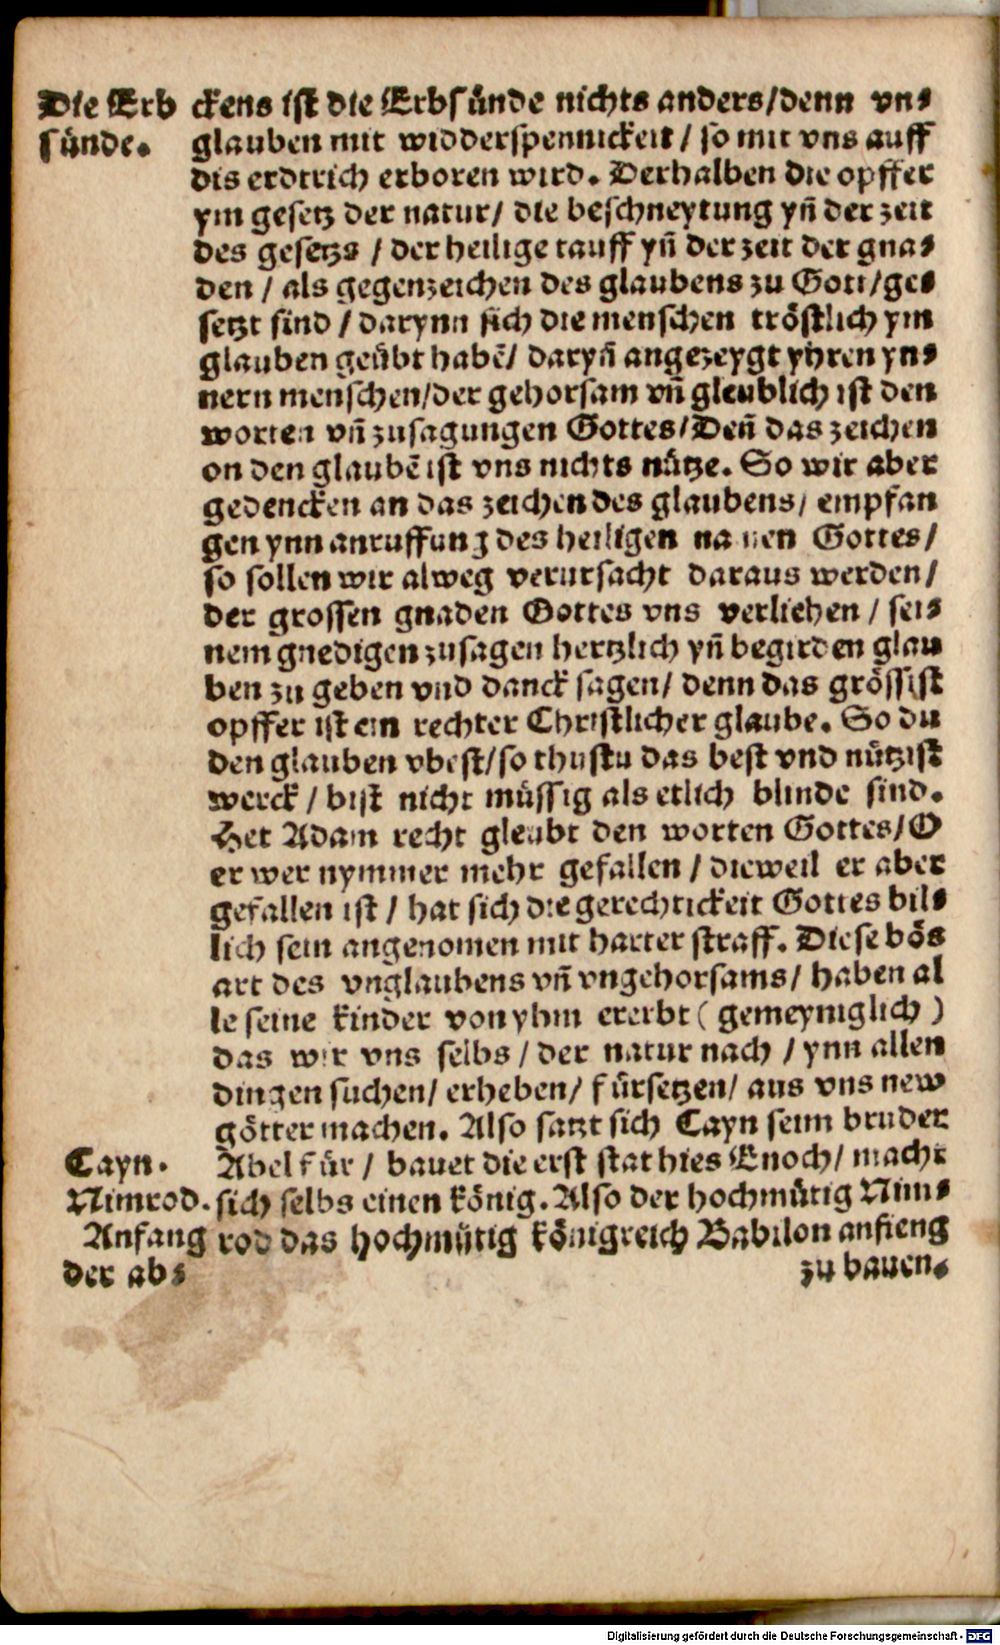 Die Erb
sünde.
ckens ist die Erbsünde nichts anders/denn vn⸗
glauben mit widderspennickeit / so mit vns auff
dis erdtrich erboren wird. Derhalben die opffer
ym gesetz der natur/ die beschneytung yñ der zeit
des gesetzs / der heilige tauff yñ der zeit der gna⸗
den / als gegenzeichen des glaubens zu Gott/ge⸗
setzt sind / darynn sich die menschen tröstlich ym
glauben geübt habē/ daryñ angezeygt yhren yn⸗
nern menschen/der gehorsam vñ gleublich ist den
worten vñ zusagungen Gottes/Deñ das zeichen
on den glaubē ist vns nichts nütze. So wir aber
gedencken an das zeichen des glaubens/ empfan
gen ynn anruffung des heiligen namen Gottes/
so sollen wir alweg verursacht daraus werden/
der grossen gnaden Gottes vns verliehen / sei⸗
nem gnedigen zusagen hertzlich yñ begirden glau
ben zu geben vnd danck sagen/ denn das grössist
opffer ist ein rechter Christlicher glaube. So du
den glauben vbest/so thustu das best vnd nützist
werck / bist nicht müssig als etlich blinde sind.
Het Adam recht gleubt den worten Gottes/O
er wer nymmer mehr gefallen / dieweil er aber
gefallen ist / hat sich die gerechtickeit Gottes bil⸗
lich sein angenomen mit harter straff. Diese bös
art des vnglaubens vñ vngehorsams/ haben al
le seine kinder von yhm ererbt ( gemeyniglich )
das wir vns selbs / der natur nach / ynn allen
dingen suchen/ erheben/ fürsetzen/ aus vns new
götter machen. Also satzt sich Cayn seim bruder
Cayn.
Abel für / bauet die erst stat hies Enoch/ macht
Nimrod.
sich selbs einen könig. Also der hochmütig Nim⸗
Anfang
rod das hochmütig königreich Babilon anfieng
der ab⸗
zu bauen.
Digitalisierung gefördert durch die Deutsche Forschungsgemeinschaft - DFG